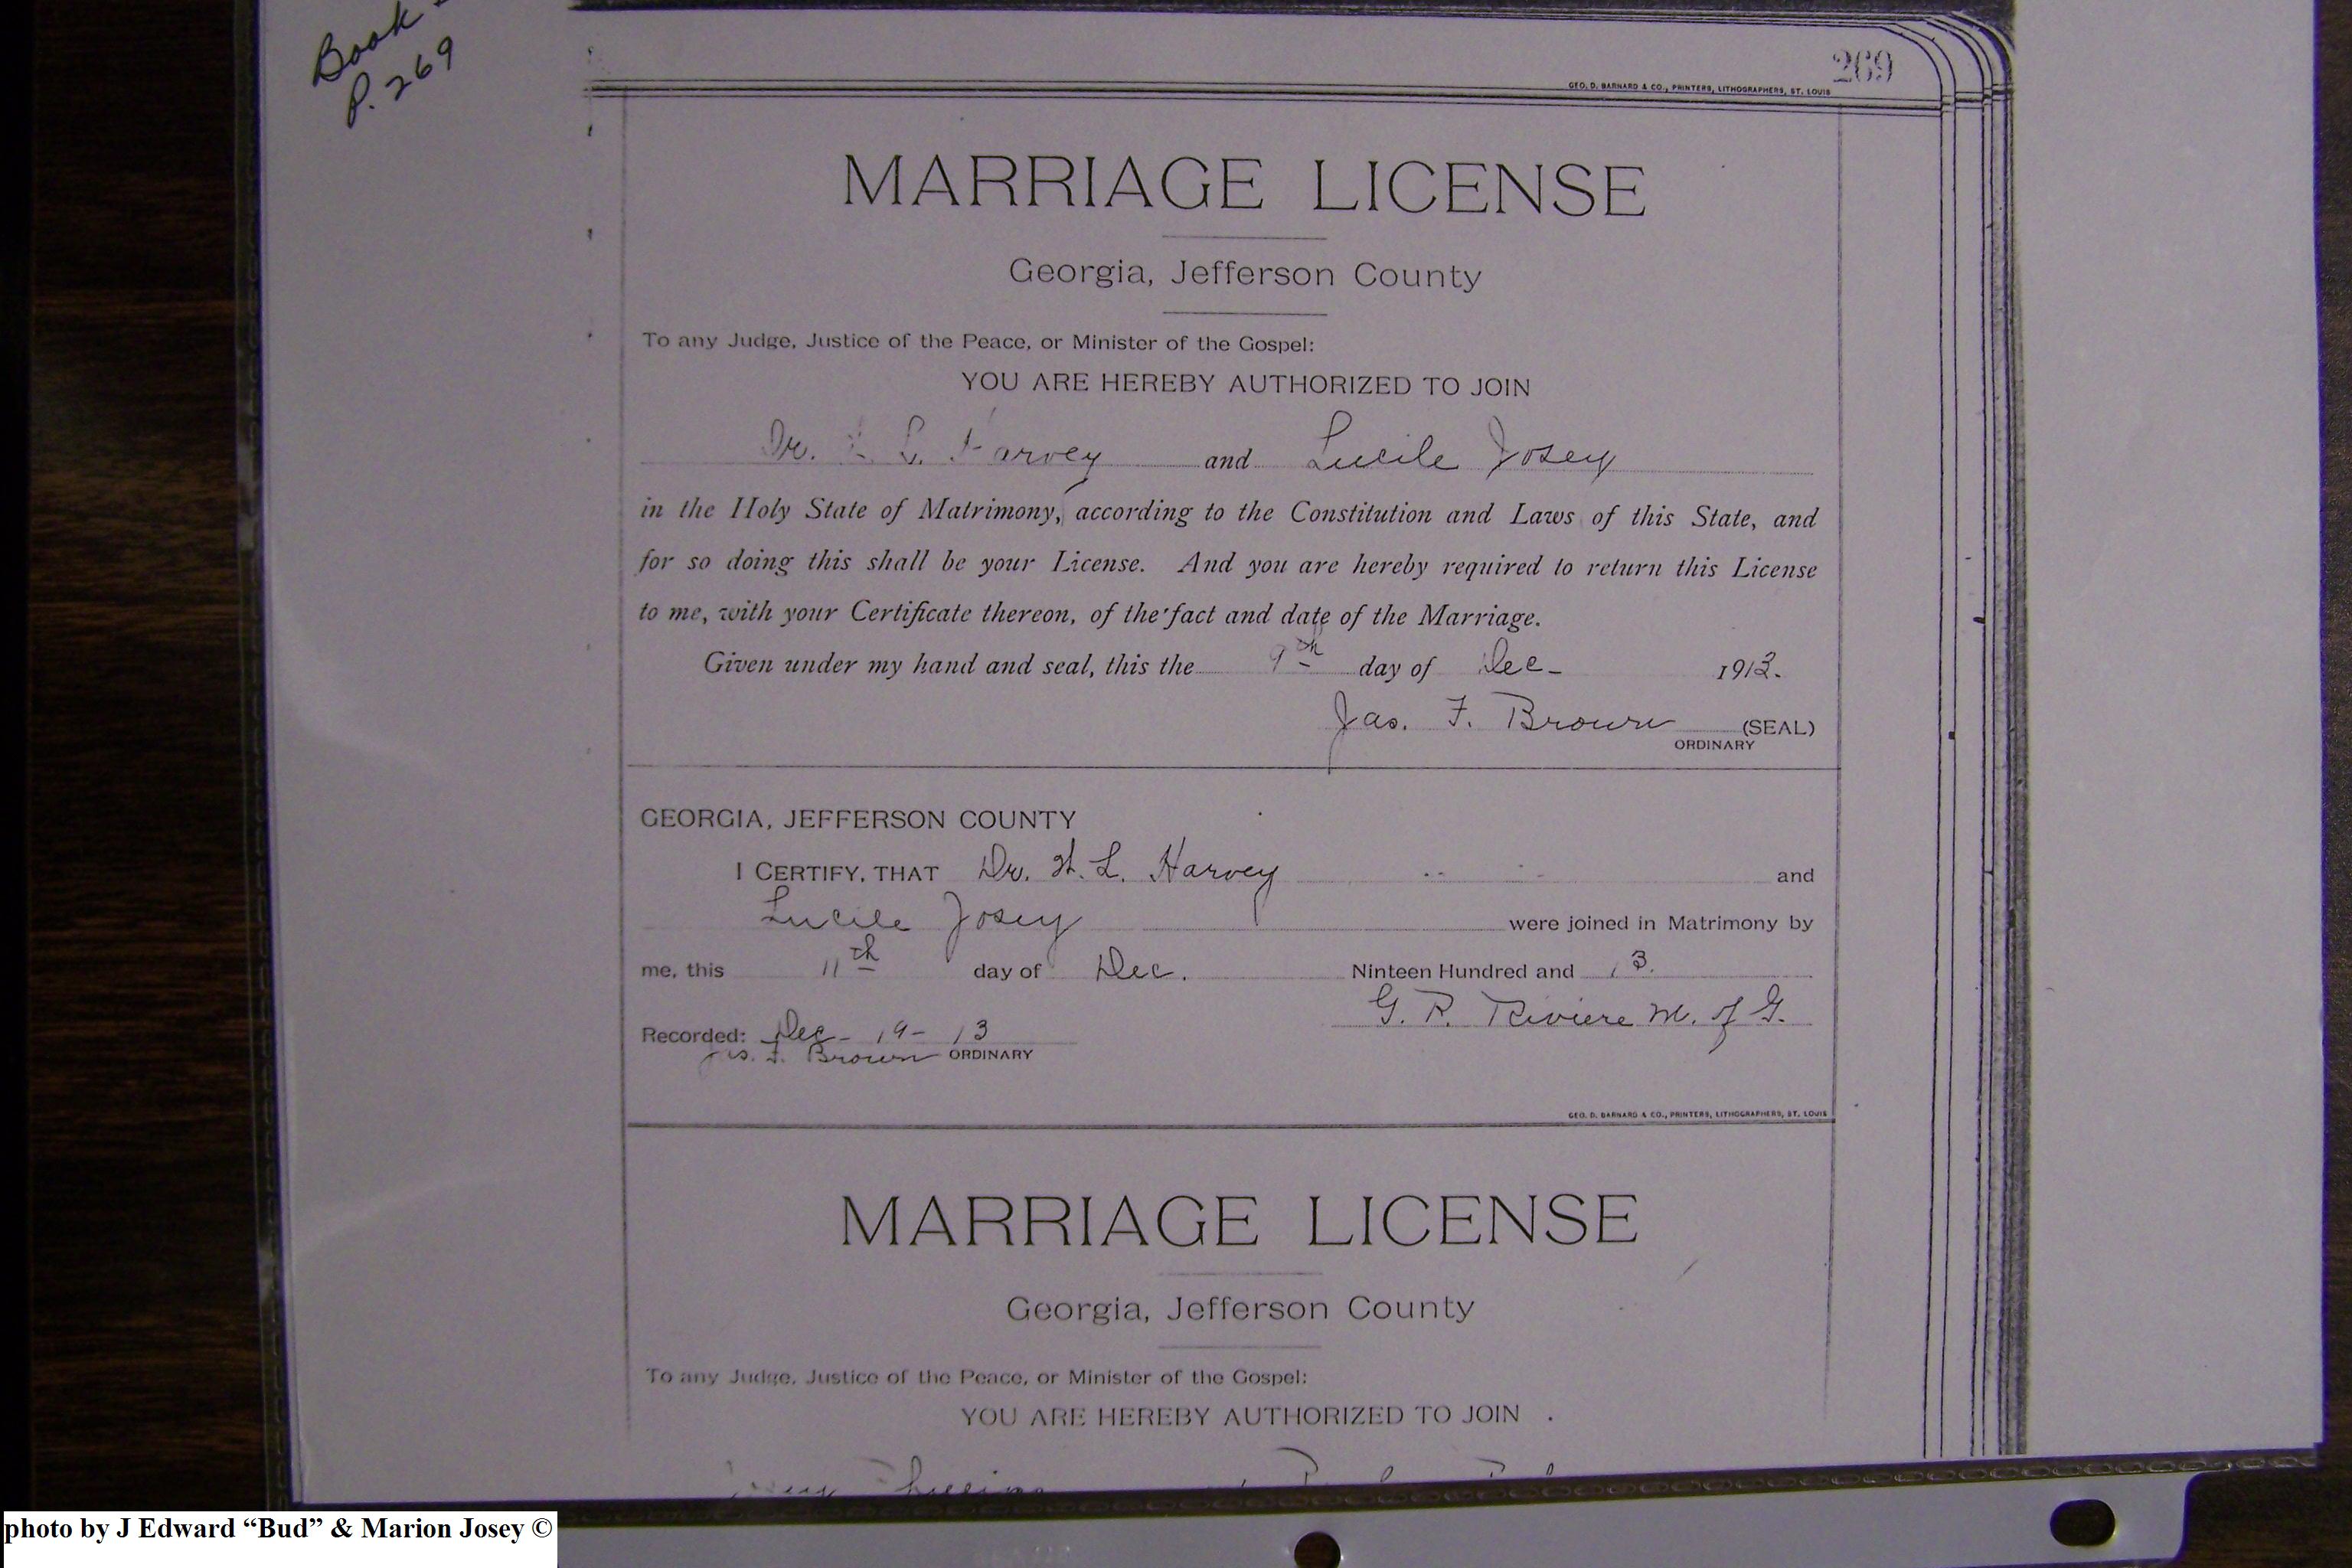 Book
P. 269
269
GEO. D. BARNARD & CO., PRINTERS, LITHOGRAPHERS, ST. LOUIS
MARRIAGE LICENSE
Georgia, Jefferson County
To any Judge, Justice of the Peace, or Minister of the Gospel:
YOU ARE HEREBY AUTHORIZED TO JOIN
Dr. L. Harvey and Lucile Josey
in the Holy State of Matrimony, according to the Constitution and Laws of this State, and
for so doing this shall be your License. And you are hereby required to return this License
to me, with your Certificate thereon, of the fact and date of the Marriage.
Given under my hand and seal, this the 9th day of Dec - 1913.
Jas. F. Brown (SEAL)
ORDINARY
GEORGIA, JEFFERSON COUNTY
I CERTIFY, THAT Dr. H. L. Harvey and
Lucile Josey were joined in Matrimony by
me, this 11th day of Dec. Ninteen Hundred and 13.
G. R. Riviere M. of G.
Recorded: Dec - 19 - 13
Jas. F. Brown ORDINARY
GEO. D. BARNARD & CO., PRINTERS, LITHOGRAPHERS, ST. LOUIS
MARRIAGE LICENSE
Georgia, Jefferson County
To any Judge, Justice of the Peace, or Minister of the Gospel:
YOU ARE HEREBY AUTHORIZED TO JOIN
photo by J Edward “Bud” & Marion Josey ©